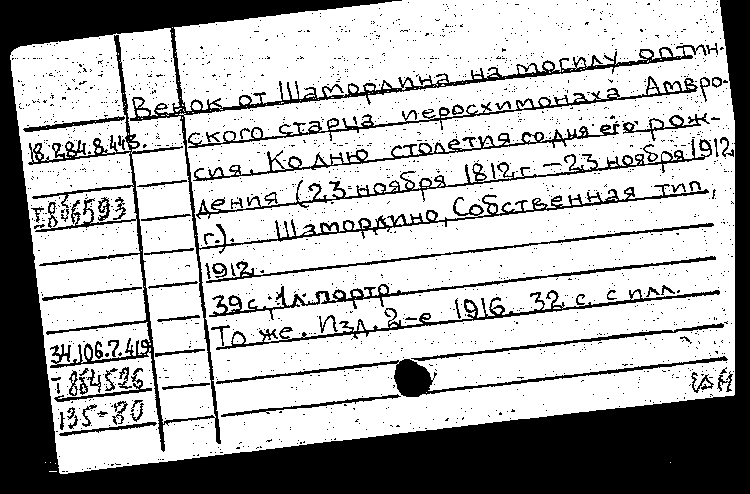 Венок от Шамордина на могилу оптин-
18.284.8.443.
ского старца иеросхимонаха Амвро-
сия. Ко дню столетия со дня его рож-
I 866593
дения (23 ноября 1812 г. – 23 ноября 1912
г.). Шамордино, Собственная тип,
1912.
39 с., 1 л. портр.
То же. Изд. 2-е 1916. 32 с. с илл.
34.106.7.419
I 864526
135-80